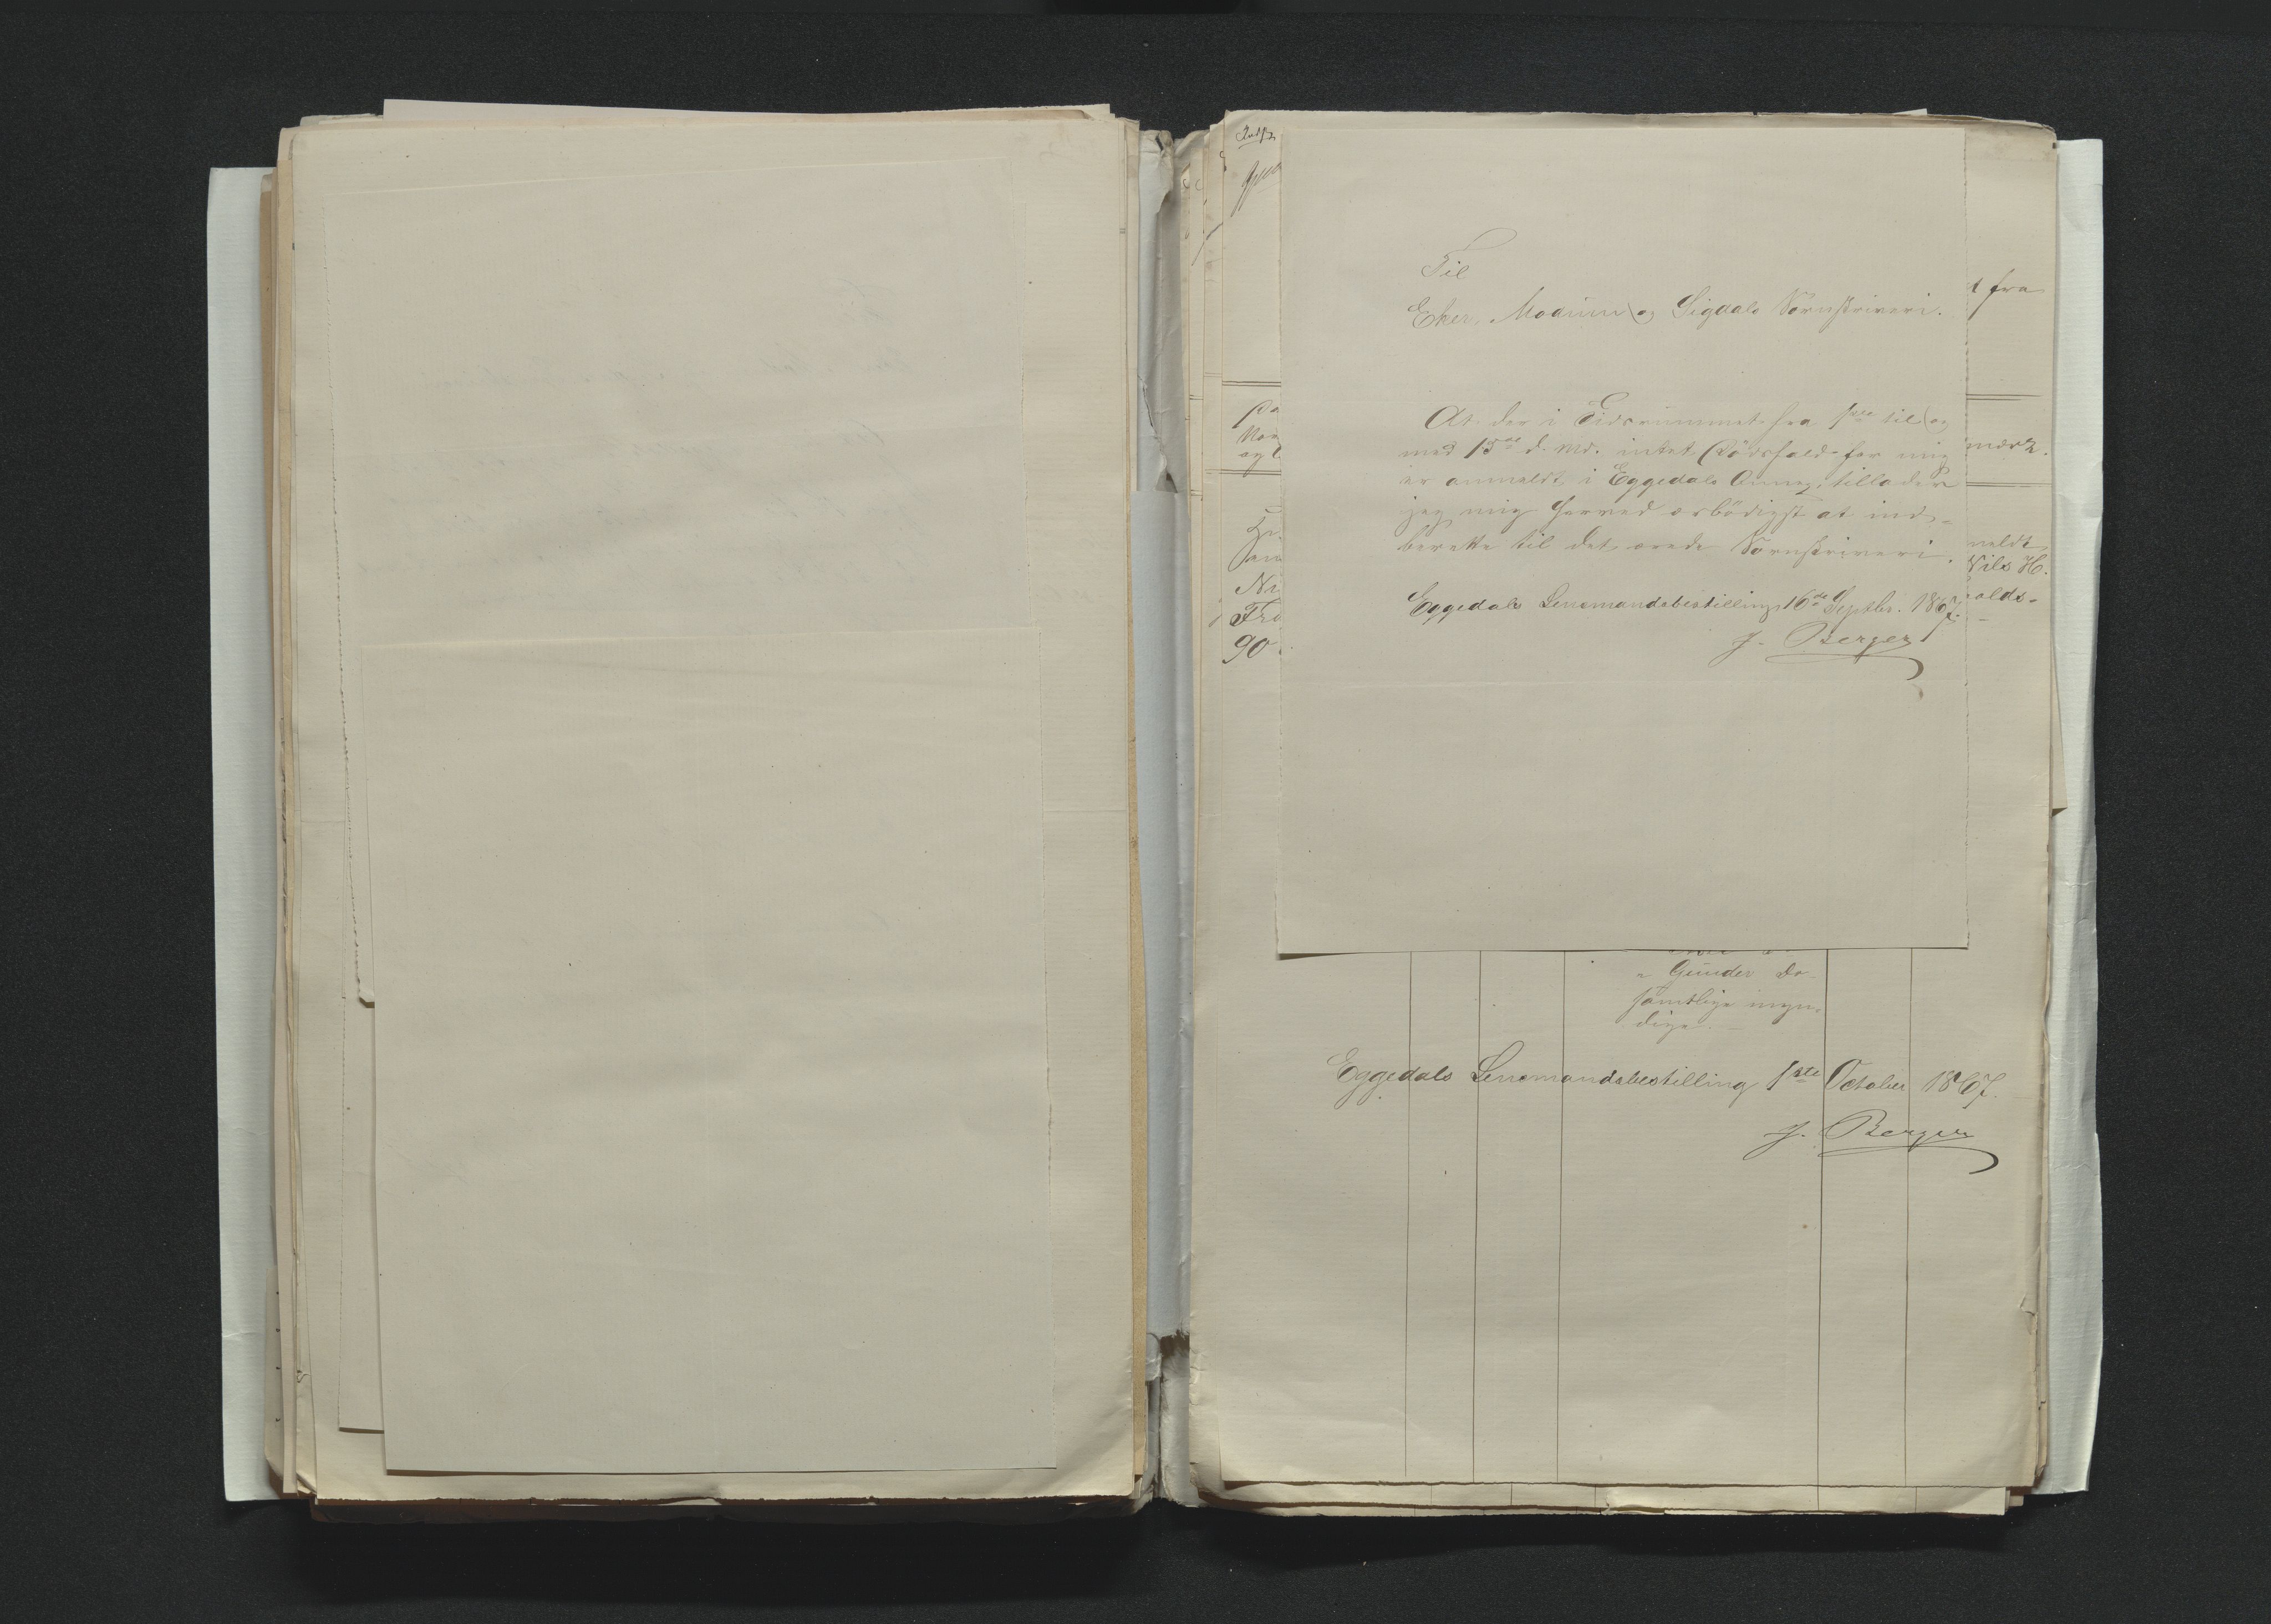 Til
Eker, Modum og Sigdals Sorenskriveri.
At der i Tidsrummet fra 1ste til og
med 15de d. Md. intet Dödsfald for mig
er anmeldt i Eggedals Annex, tillader
jeg mig herved ærbödigst at ind-
berette til det ærede Sorenskriveri.
Eggedals Lensmandsbestilling 16de Septbr. 1867.
J. Berger
fra
mærk.
meldt
Nils H.
alds-
Ni
Fro
90
" Gunder Do
samtlige myn-
dige.
Eggedals Lensmandsbestilling 1ste October 1867.
J. Berger